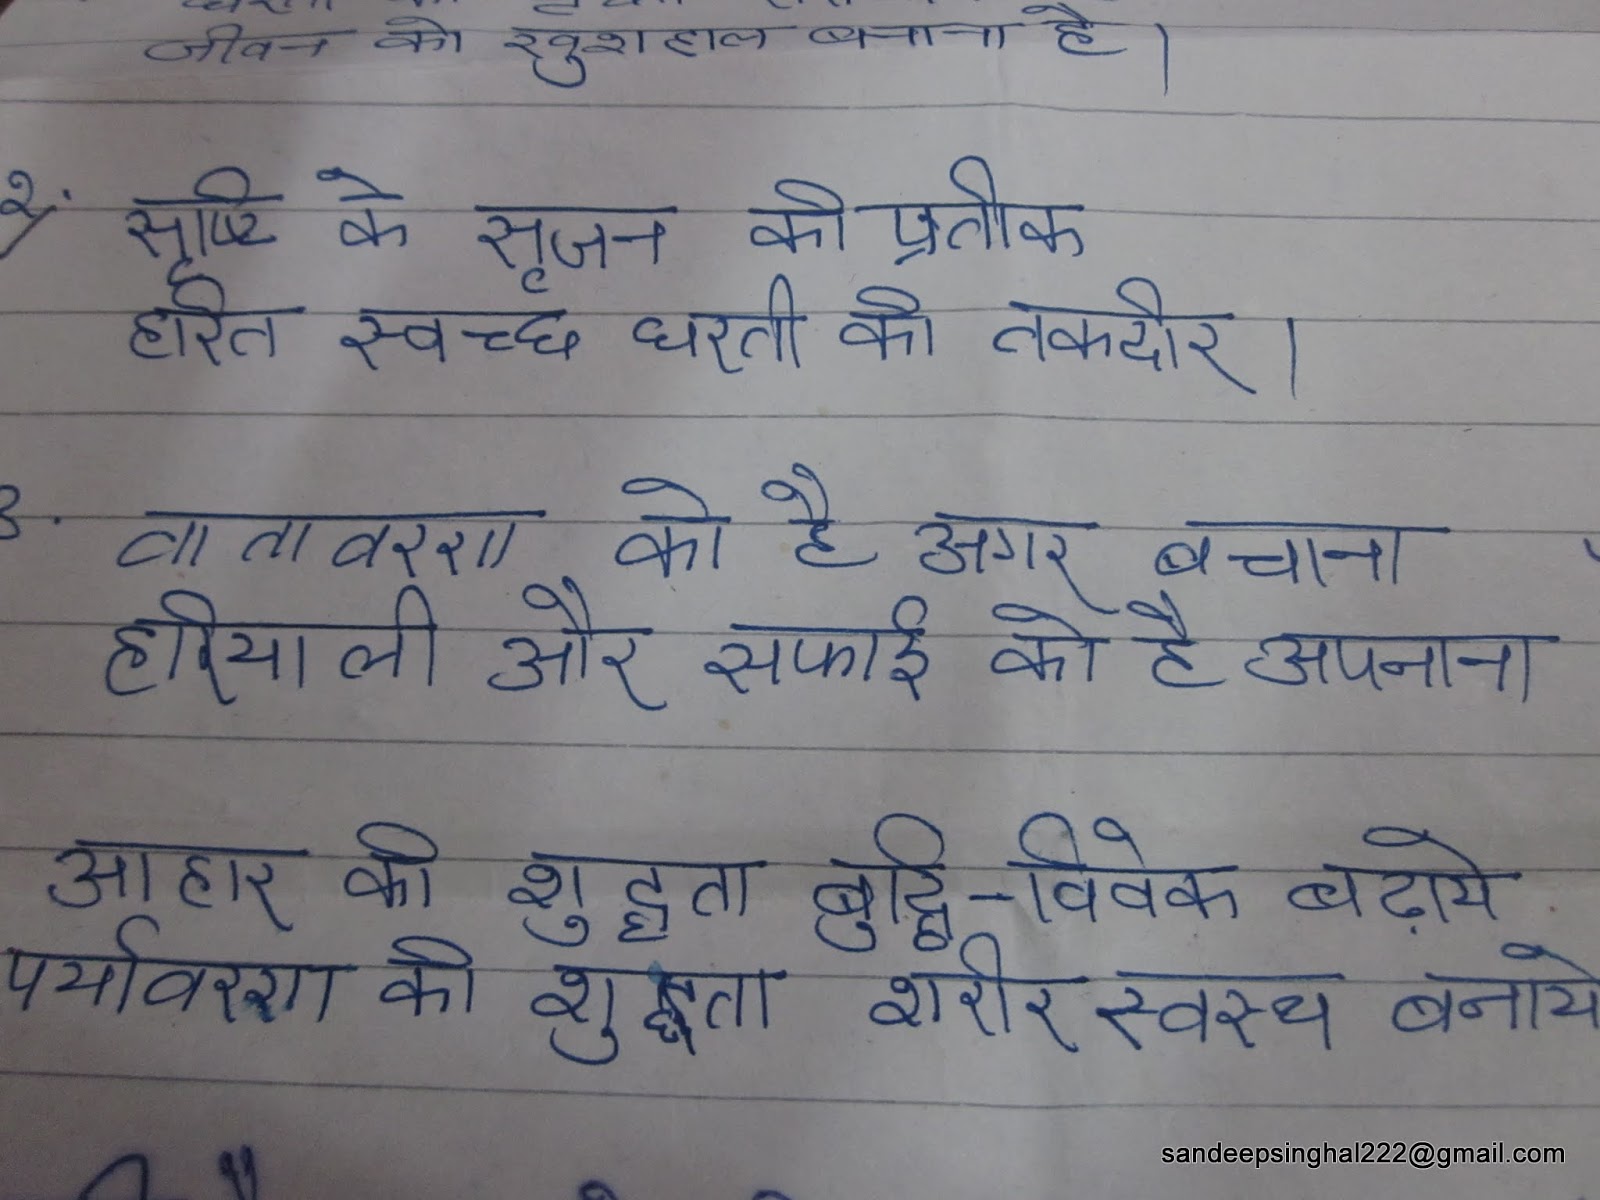 जीवन को खुशहाल बनाना है।
२. सृष्टि के सृजन की प्रतीक
हरित स्वच्छ धरती की तकदीर।
3. वातावरण को है अगर बचाना
हरियाली और सफाई को है अपनाना
आहार की शुद्धता बुद्धि-विवेक बढ़ाये
पर्यावरण की शुद्धता शरीर स्वस्थ बनाये
sandeepsinghal222@gmail.com